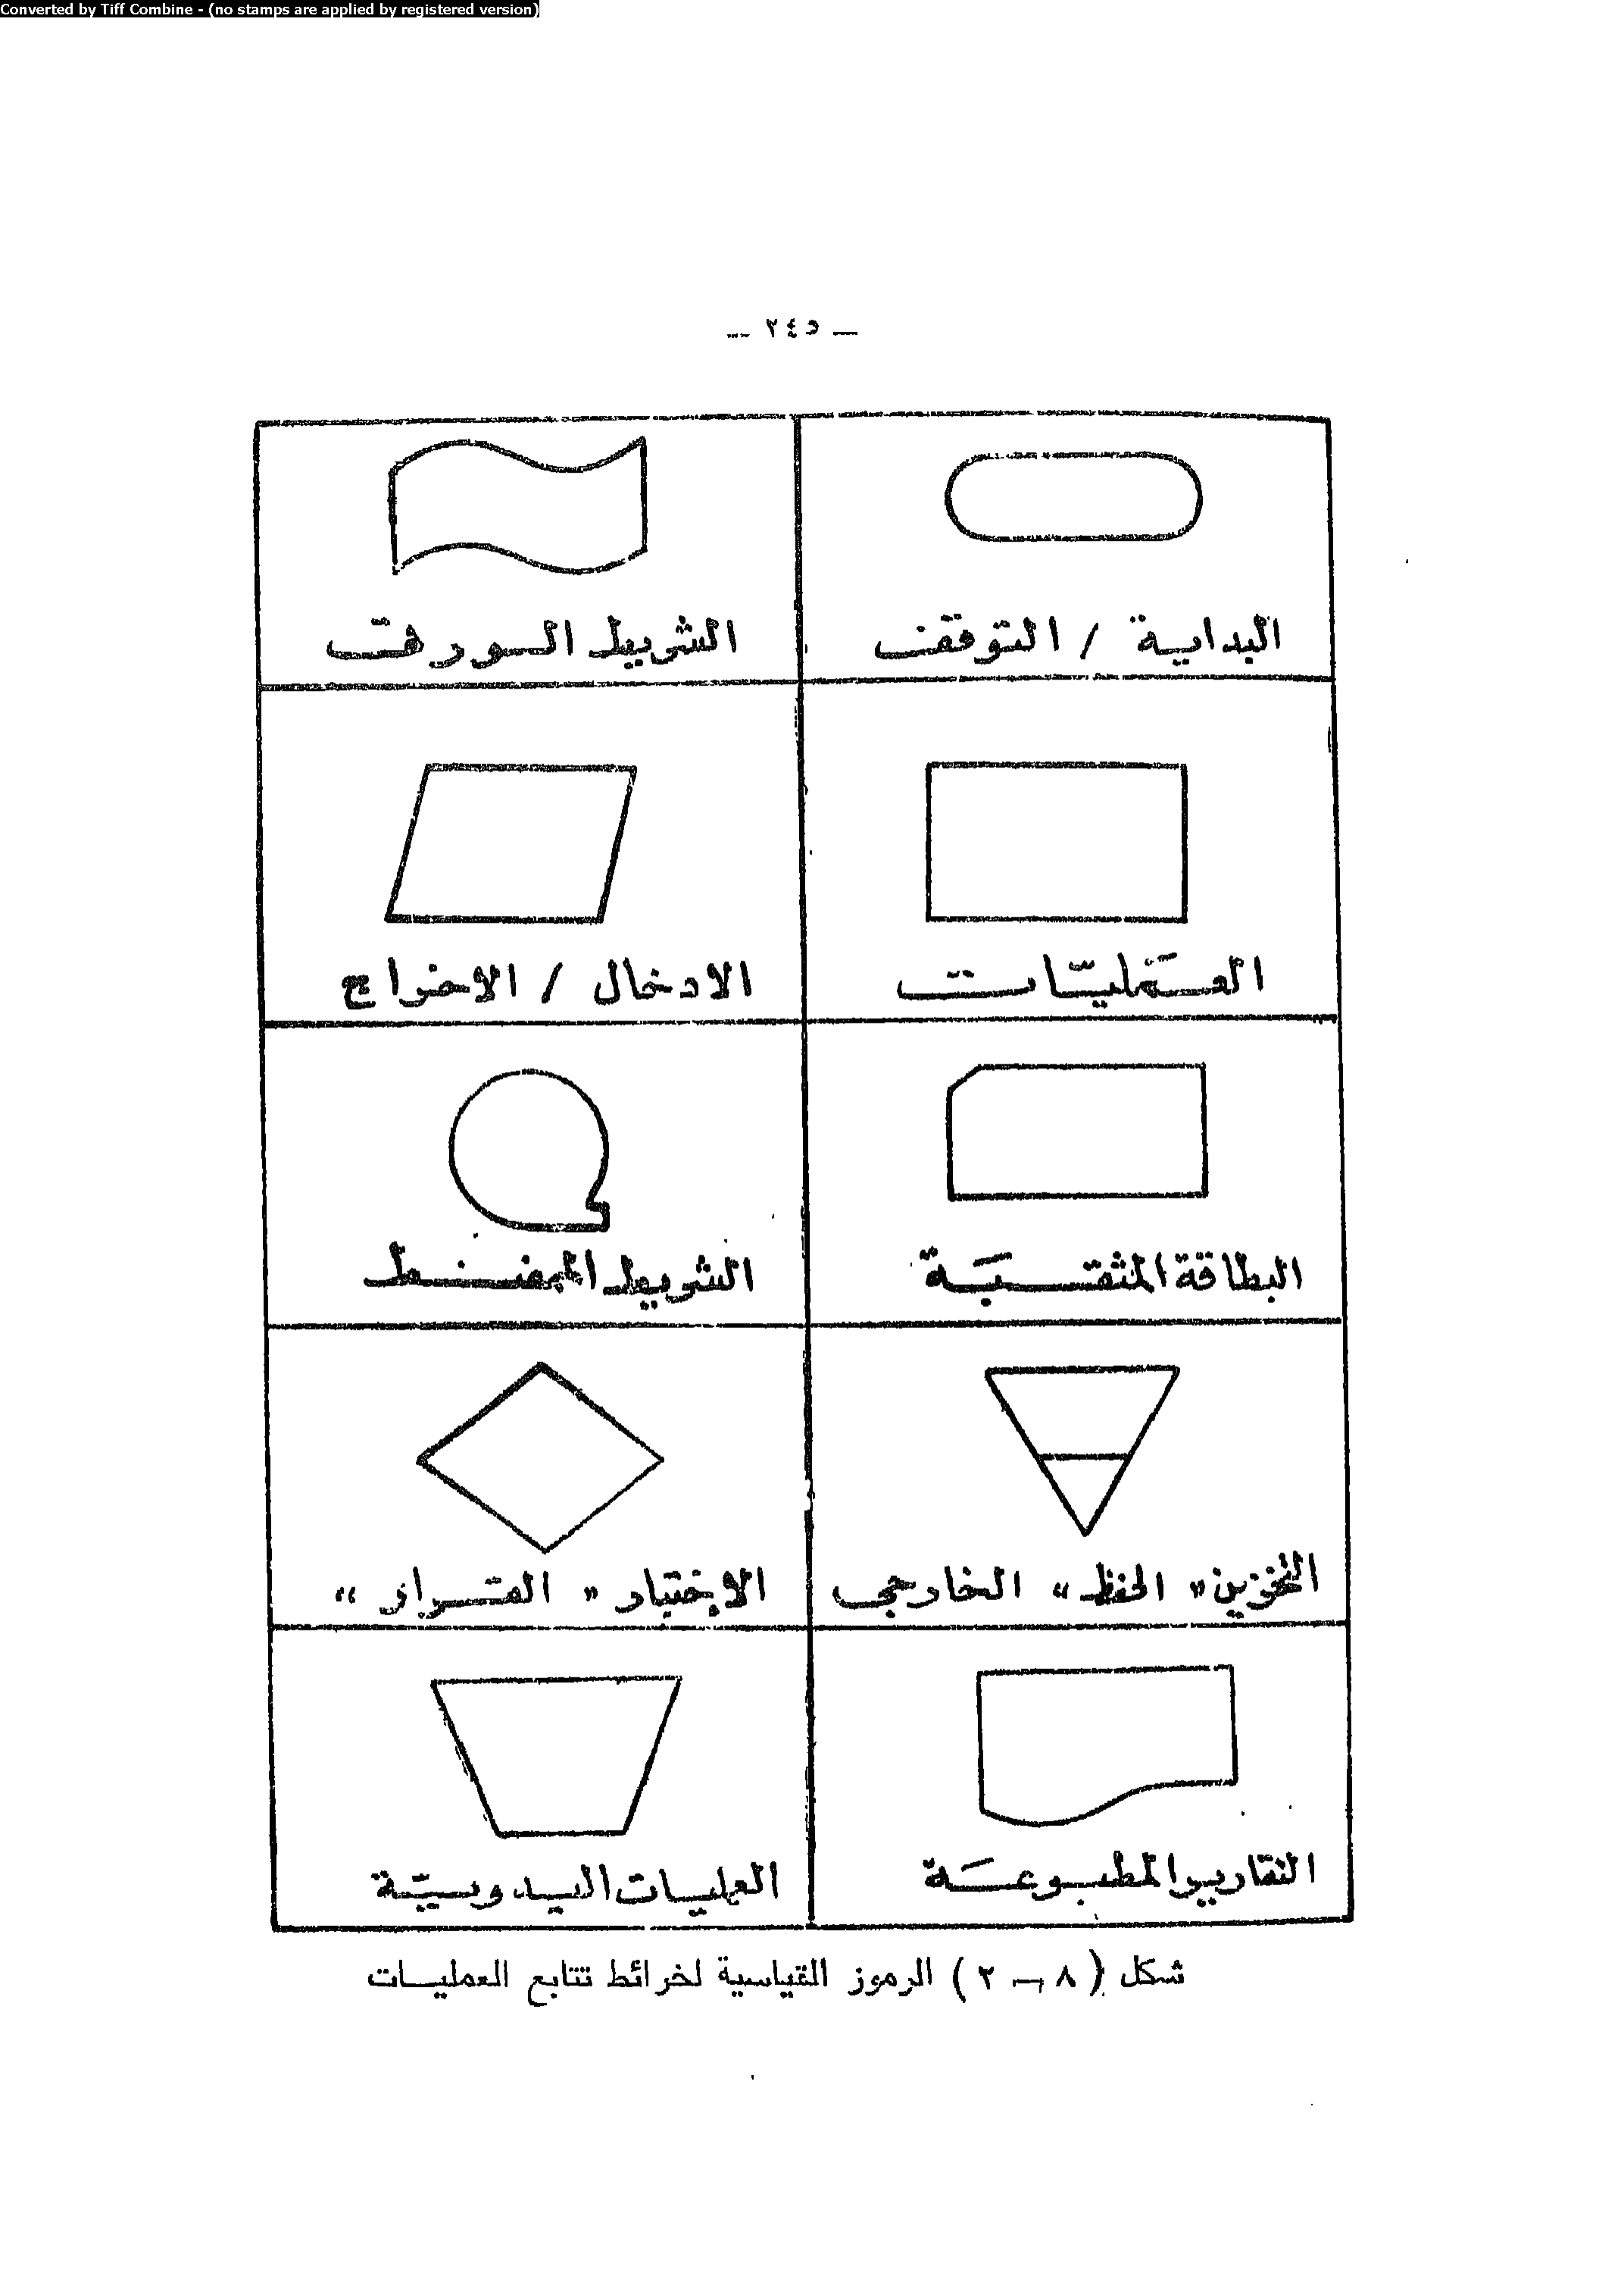 Converted by Tiff Combine - (no stamps are applied by registered version)
— ٢٤٥ —
البداية / التوقف
الشريط الورقى
العمليات
الادخال / الاخراج
البطاقة المثقبة
الشريط الممغنط
التخزين " الحفظ " الخارجى
الاختبار " القرار "
التقارير المطبوعة
العمليات اليدوية
شكل ( ٨ — ٢ ) الرموز القياسية لخرائط تتابع العمليات